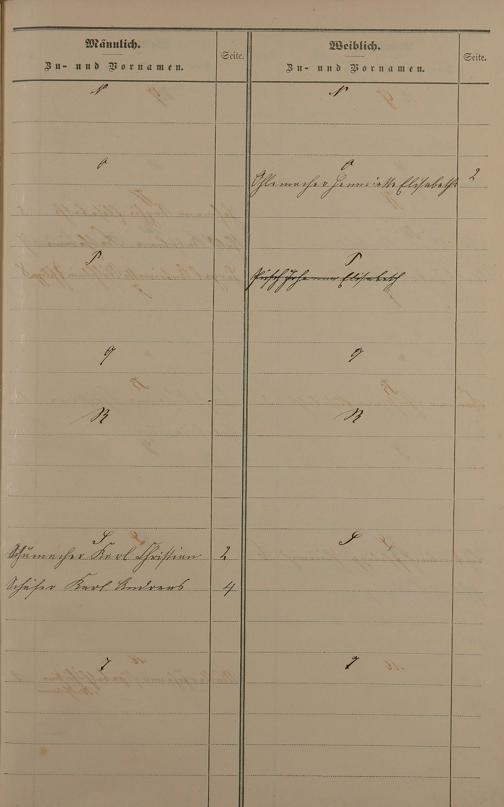 Männlich.
Zu- und Vornamen.
Seite.
Weiblich.
Zu- und Vornamen.
Seite.
N
N
O
O
Ohlemacher Henriette Elisabeth
2
P
P
Pusch Johanna Elisabeth
Q
Q
R
R
S
S
Schumacher Karl Christian 2
Schäfer Karl Andreas 4
T
T